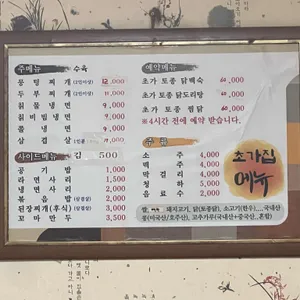 주메뉴 수육
두부찌개(2인이상) 11,000
칡물냉면 9,000
칡비빔냉면 9,000
쫄냉면 9,000
삼겹살
사이드메뉴 김 500
공기밥 1,000
라면사리 1,500
냉면사리 2,000
볶음밥(삼겹살) 2,000
된장찌개(후식)(삼겹살) 3,000
꼬마만두 3,500
예약메뉴
초가 토종 닭백숙
초가 토종 닭도리탕
초가 토종 찜닭
※4시간 전에 예약 받습니다.
주판
소주 4,000
맥주 4,000
막걸리 4,000
청하 5,000
음료수 2,000
초가집
메뉴
쌀, 돼지고기, 닭(토종닭), 소고기(한우)...국내산
콩(미국산/호주산), 고추가루(국내산+중국산, 혼합)